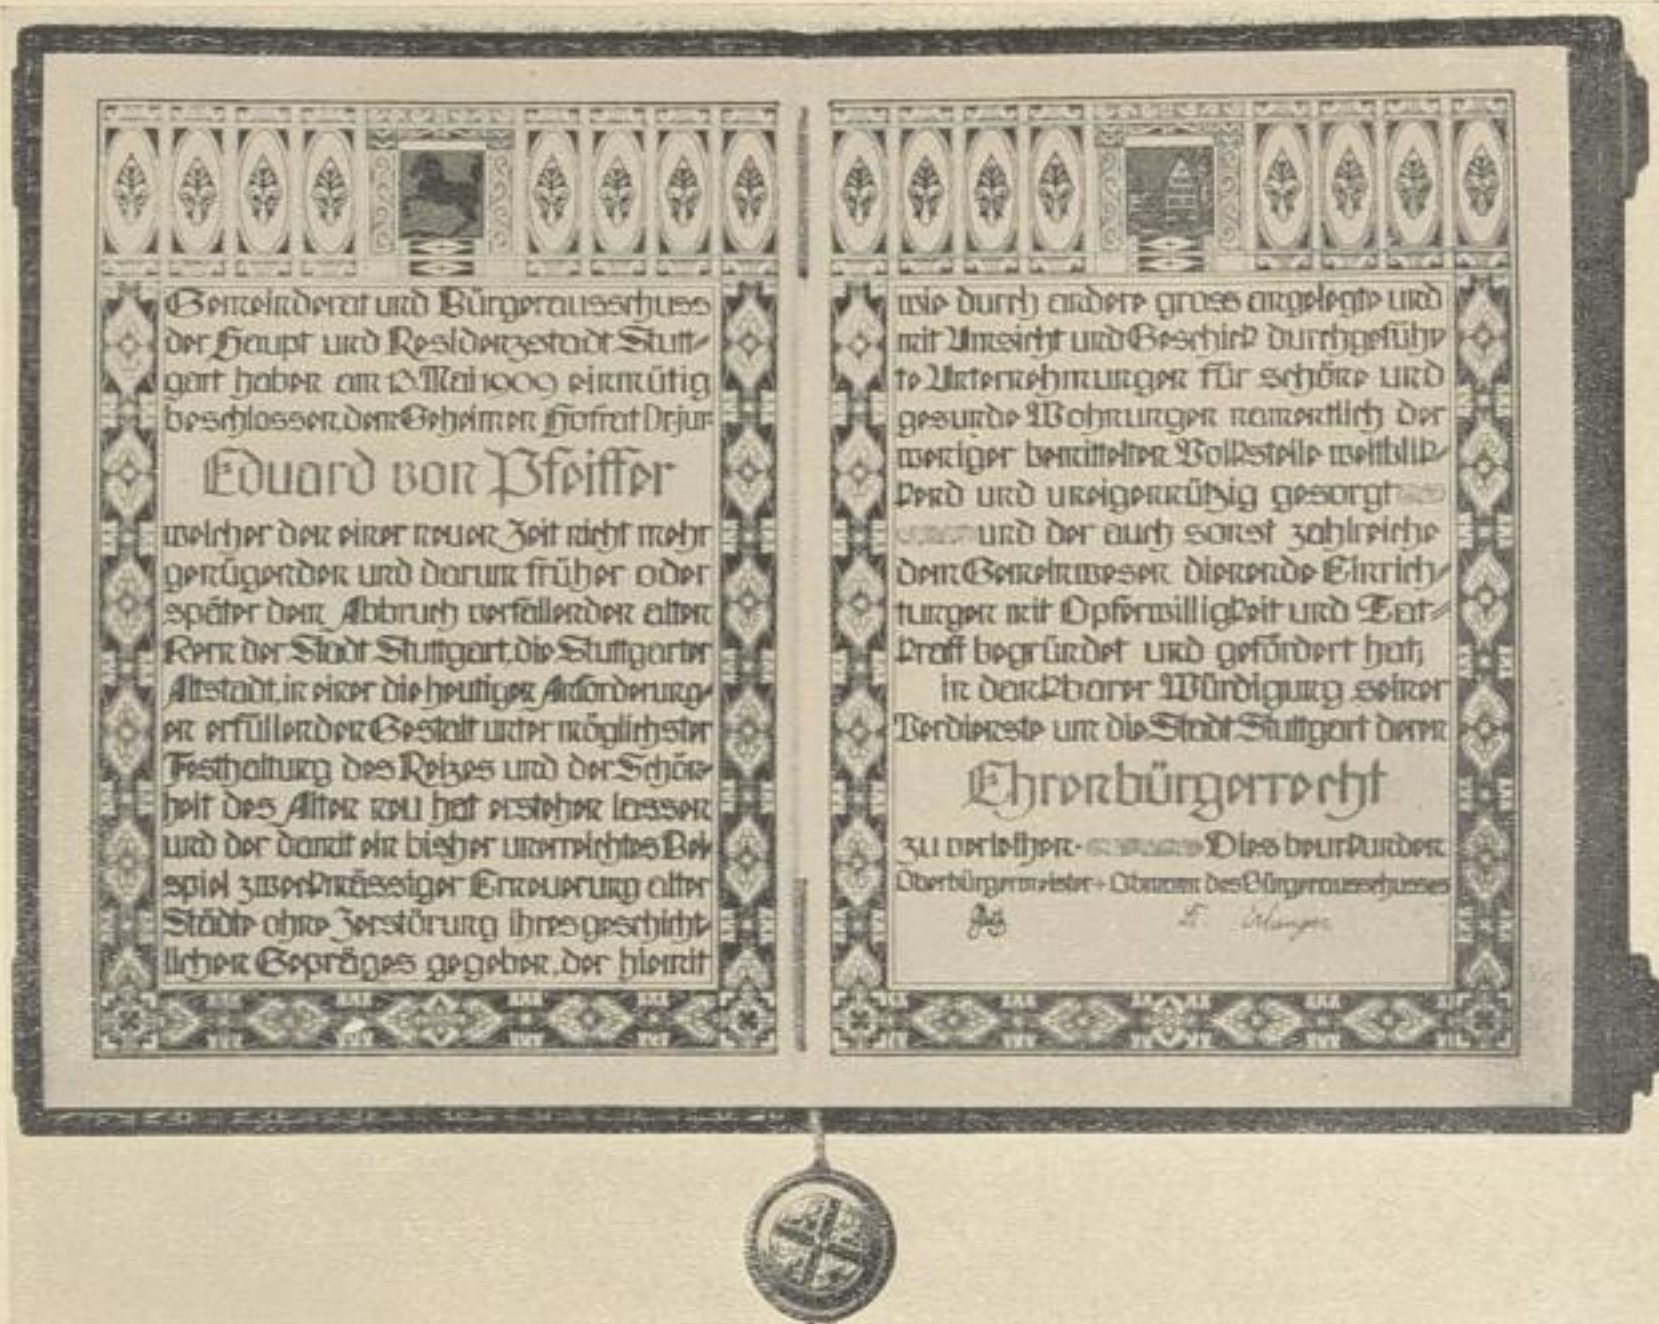 Gemeinderat und Bürgerausschuss
der Haupt und Residenzstadt Stutt-
gart haben am 13. Mai 1909 einmütig
beschlossen, dem Geheimen Hofrat Dr. jur.
Eduard von Pfeiffer
welcher den einer neuen Zeit nicht mehr
genügenden und darum früher oder
später dem Abbruch verfallenden alten
Kern der Stadt Stuttgart, die Stuttgarter
Altstadt, in einer die heutigen Anforderung-
en erfüllenden Gestalt unter möglichster
Festhaltung des Reizes und der Schön-
heit des Alten neu hat erstehen lassen
und der damit ein bisher unerreichtes Bei-
spiel zweckmässiger Erneuerung alter
Städte ohne Zerstörung ihres geschicht-
lichen Gepräges gegeben, der hiemit
wie durch andere gross angelegte und
mit Umsicht und Geschick durchgeführ-
te Unternehmungen für schöne und
gesunde Wohnungen namentlich der
weniger bemittelten Volksteile weitblik-
kend und uneigennützig gesorgt
und der auch sonst zahlreiche
dem Gemeinwesen dienende Einrich-
tungen mit Opferwilligkeit und Tat-
kraft begründet und gefördert hat;
in dankbarer Würdigung seiner
Verdienste um die Stadt Stuttgart deren
Ehrenbürgerrecht
zu verleihen. Dies beurkunden
Oberbürgermeister + Obmann des Bürgerausschusses
Dr. Erlanger